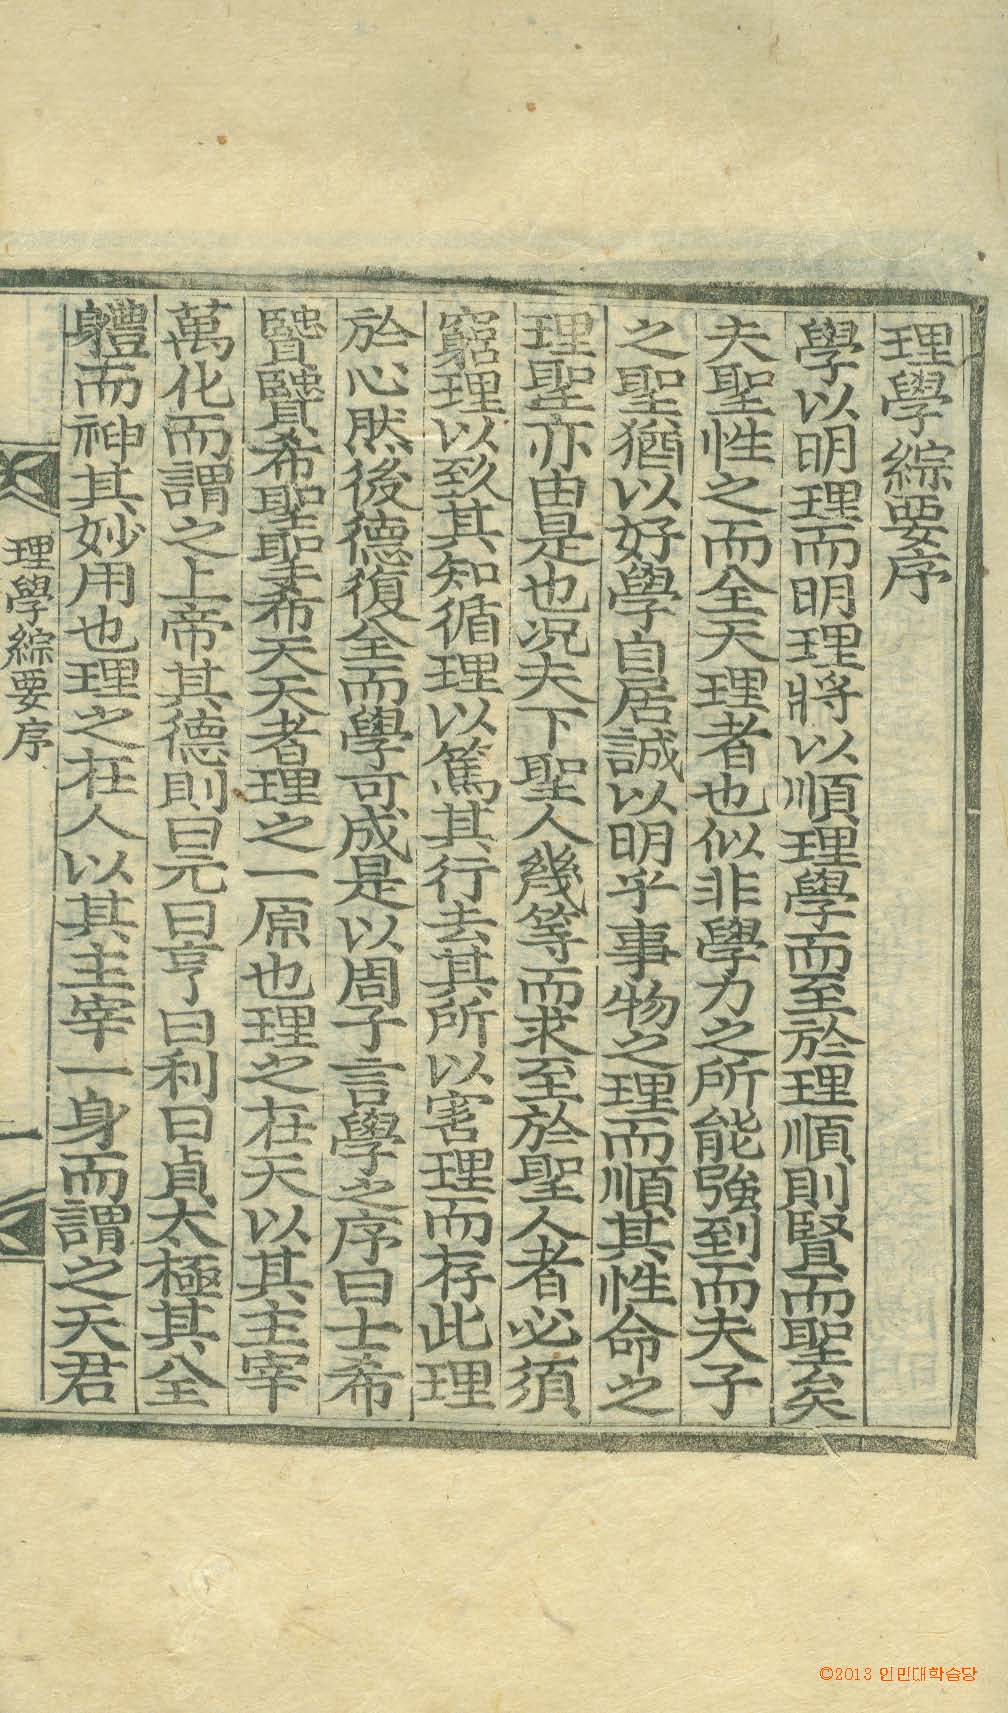 理學綜要序
學以明理而明理將以順理學而至於理順則賢而聖矣
夫聖性之而全天理者也似非學力之所能強到而夫子
之聖猶以好學自居誠以明乎事物之理而順其性命之
理聖亦由是也况夫下聖人幾等而求至於聖人者必須
窮理以致其知循理以篤其行去其所以害理而存此理
於心然後德復全而學可成是以周子言學之序曰士希
賢賢希聖聖希天天者理之一原也理之在天以其主宰
萬化而謂之上帝其德則曰元曰亨曰利曰貞太極其全
軆而神其妙用也理之在人以其主宰一身而謂之天君
理學綜要序
一
©2013 인민대학습당